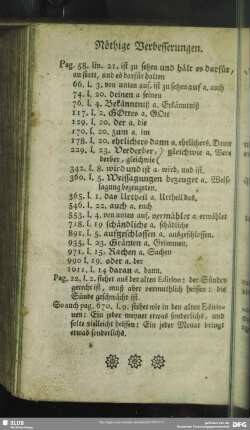 Nöthige Verbesserungen.
Pag. 58. lin. 21. ist zu setzen und hält es darfür,
an statt, und es darfür halten
66. l. 3. von unten auf, ist zu setzen auf a. auch
74. l. 20. deinen a seinen
76. l. 4. Bekänntniß a. Erkänntniß
117. l. 2. GOttes a. GOtt
129. l. 20. der a. die
170. l. 20. zum a. im
178. l. 20. ehrlichers dann a. ehrlichers. Dann
229. l. 23. Verderber,) gleichwie a. Ver-
derber, gleichwie (
342. l. 8. wird und ist a. wird, und ist.
360. l. 5. Weissagungen bezeuget a. Weis-
sagung bezeugten.
365. l. 1. das Urtheil a. Urtheil das,
546. l. 22. auch a. nach
553. l. 4. von unten auf, vermählet a. erwählet
718. l. 19 schändliche a. schädliche
891. l. 5. aufgeschlossen a. ausgeschlossen.
935. l. 23. Gränten a. Grimmen,
971. l. 15. Rachen a. Sachen
990 l. 19. oder a. der
1011. l. 14 daran a. dann.
Pag. 22. l. 2. stehet aus der alten Edition: der Sünden
gerecht ist, muß aber vermuthlich heissen: die
Sünde geschmächt ist.
So auch pag. 670, l. 9. stehet wie in den alten Editio-
nen: Ein jeder meynet etwas sonderlichs, und
solte vielleicht heissen: Ein jeder Monat bringt
etwas sonderlichs.
SLUB